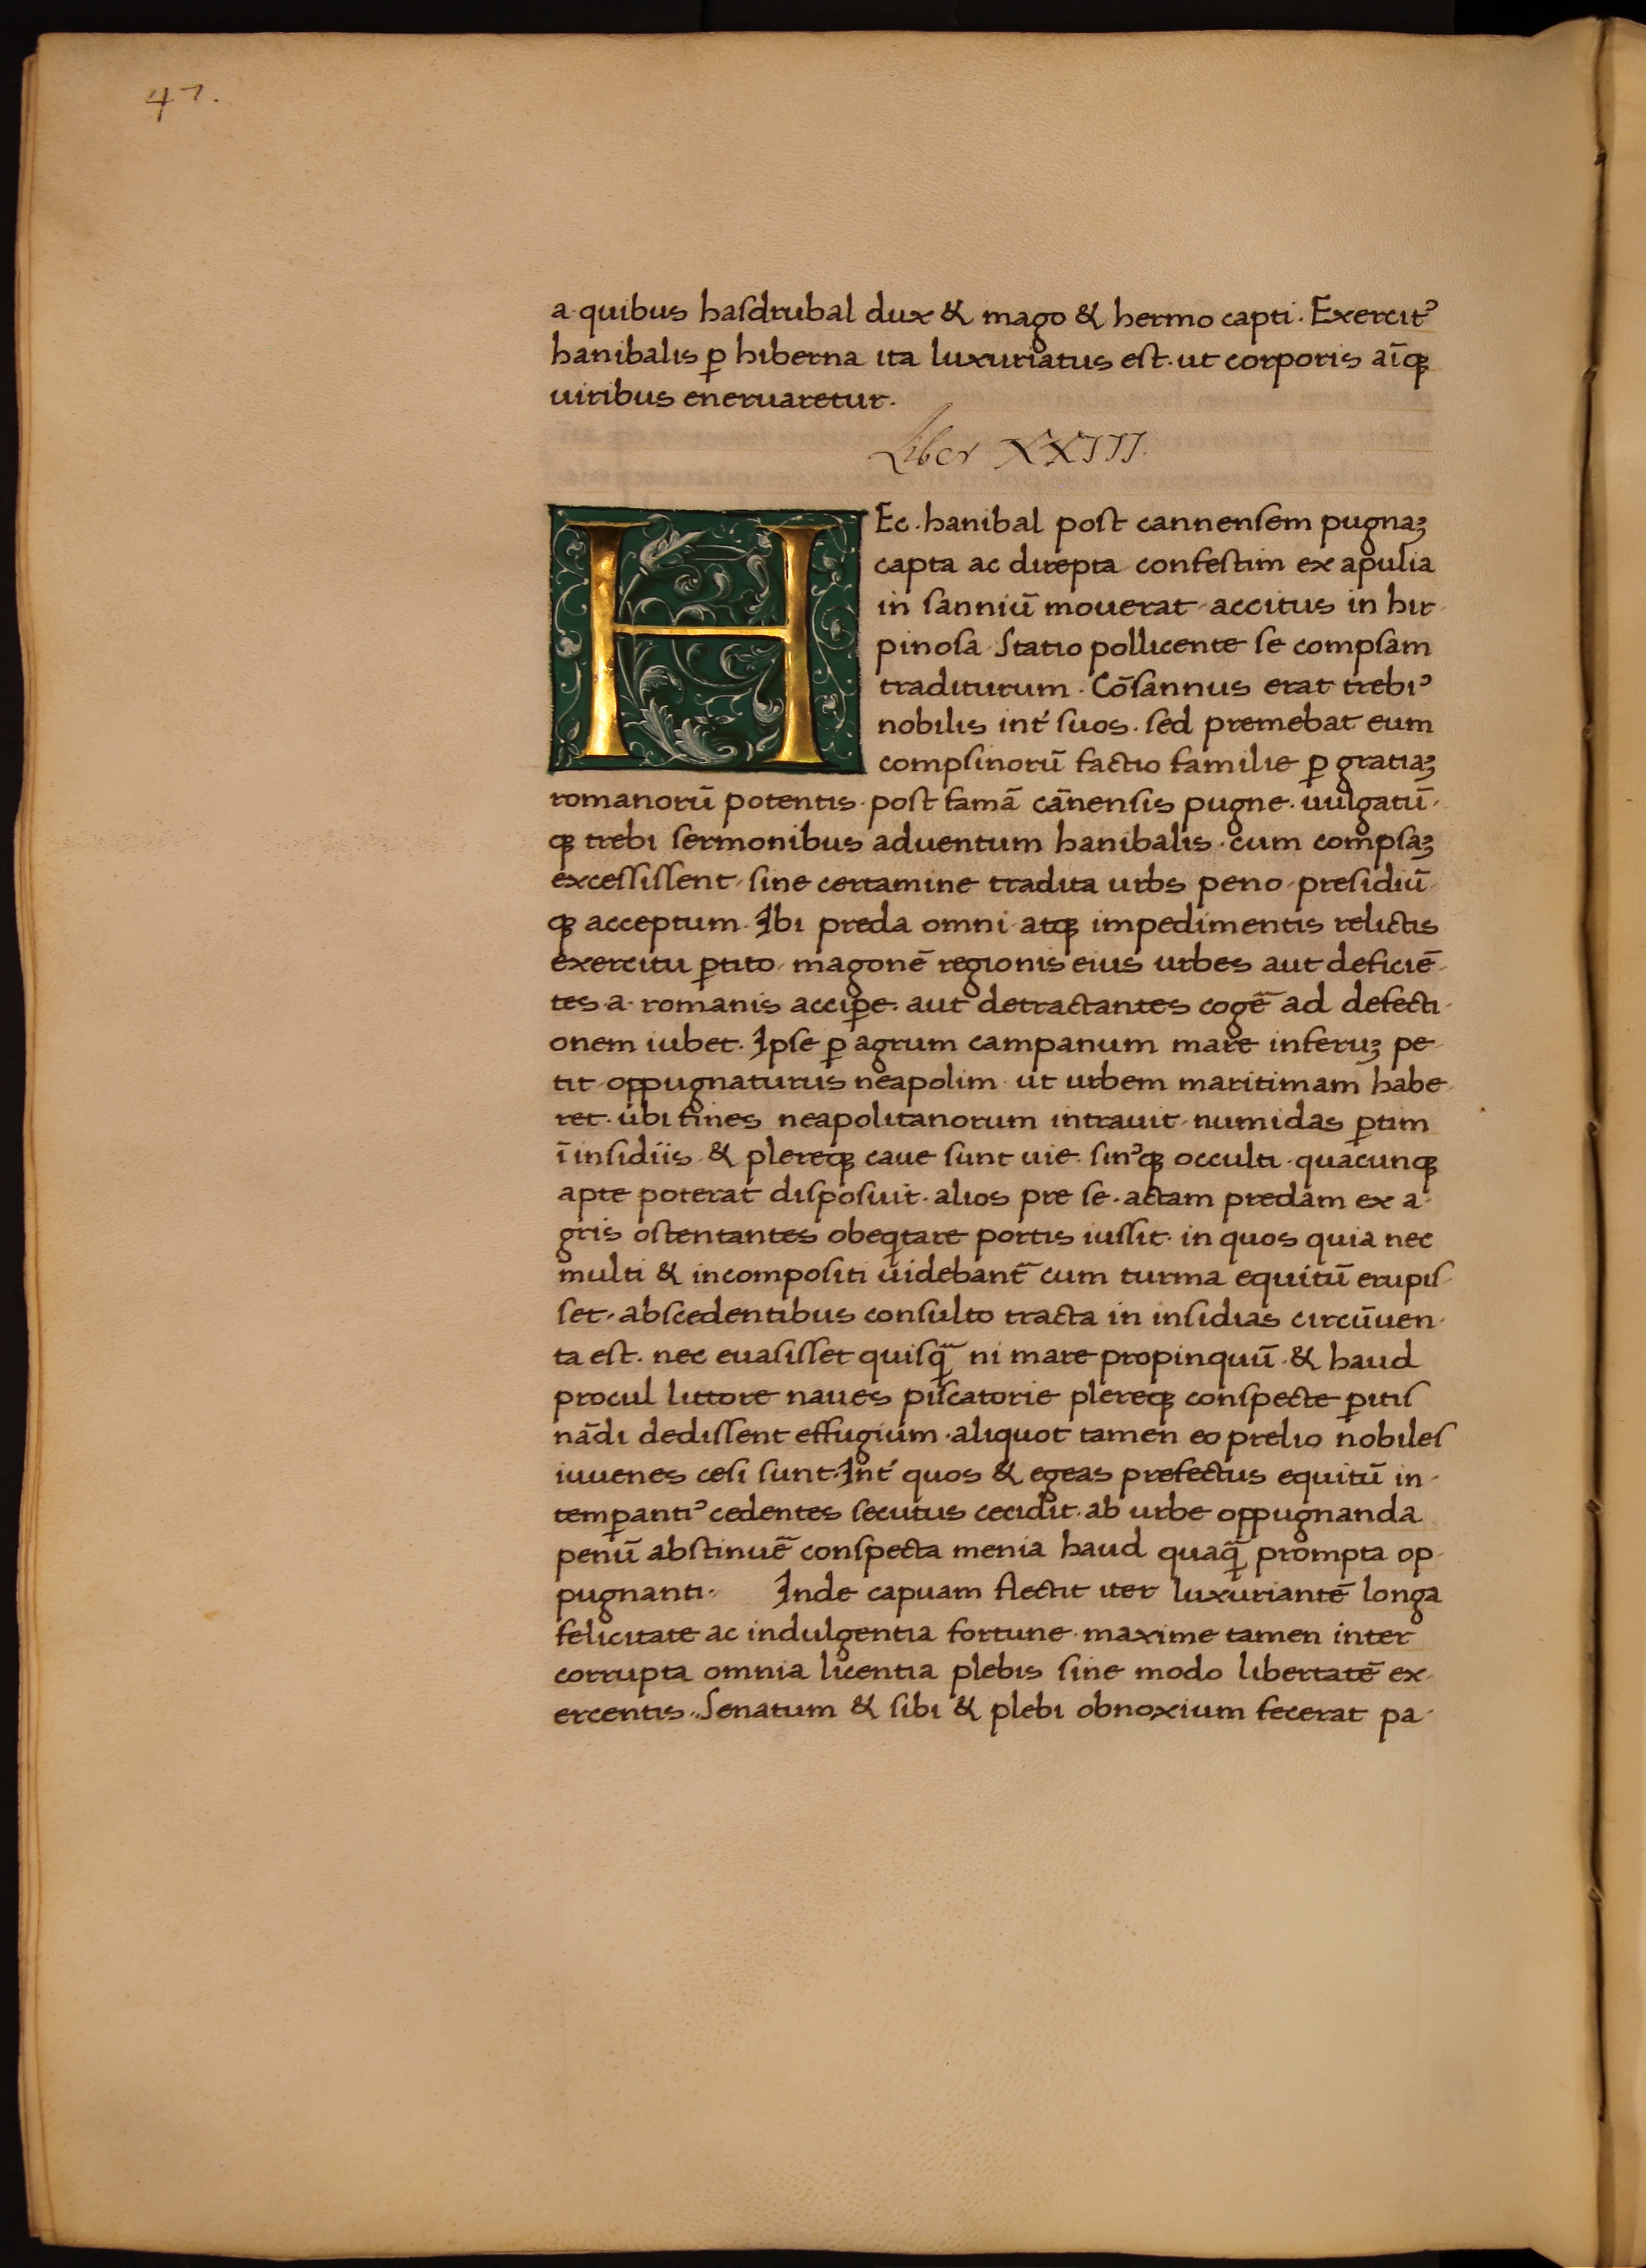 47.
a·quibus haſdrubal dux & mago & hermo capti· Exercitꝰ
hanibalis ꝑ hiberna ita luxuriatus eſt·ut corporis aīqꝫ
uiribus eneruaretur·
Liber XXIII
HEc·hanibal poſt cannenſem pugnaꝫ
capta ac direpta confeſtim ex apulia
in ſanniū mouerat·accitus in hir·
pinoſa·Statio pollicente ſe compſam
traditurum·Cōſannus erat trebiꝰ
nobilis int́ ſuos·ſed premebat eum
compſinorū factio familie ꝑ gratiaꝫ
romanorū potentis·poſt famā cānenſis pugne·uulgatū·
qꝫ trebi ſermonibus aduentum hanibalis·cum compſaꝫ
exceſſiſſent·ſine certamine tradita urbs peno·preſidiū·
qꝫ acceptum·Ibi preda omni·atqꝫ impedimentis relictis
exercitu ꝑtito·magonē regionis eius urbes aut deficiē·
tes·a·romanis acciꝑe·aut detractantes cogē ad defecti·
onem iubet·Ipſe ꝑ agrum campanum mare inferuꝫ pe·
tit·oppugnaturus neapolim·ut urbem maritimam habe·
ret·ubi fines neapolitanorum intrauit·numidas ꝑtim
ī inſidiis·& plereqꝫ caue ſunt uie·ſinꝰqꝫ occulti·quacunqꝫ
apte poterat diſpoſuit·alios pre ſe·actam predam ex a·
gris oſtentantes obeqitare portis iuſſit·in quos quia nec
multi & incompoſiti uidebant̄ cum turma equitū erupiſ·
ſet·abſcedentibus conſulto tracta in inſidias circūuen·
ta eſt·nec euaſiſſet quiſq̄ ni mare propinquū·& haud
procul littore naues piſcatorie plereqꝫ conſpecte ꝑitiſ
nādi dediſſent effugium·aliquot tamen eo prelio nobileſ
iuuenes ceſi ſunt·Int́ quos & egeas prefectus equitū in·
temꝑantiꝰ cedentes ſecutus cecidit·ab urbe oppugnanda
penū abſtinuē conſpecta menia haud quaq̄ prompta op·
pugnanti· Inde capuam flectit iter luxuriantē longa
felicitate ac indulgentia fortune·maxime tamen inter
corrupta omnia licentia plebis ſine modo libertatē ex·
ercentis·Senatum & ſibi & plebi obnoxium fecerat pa·